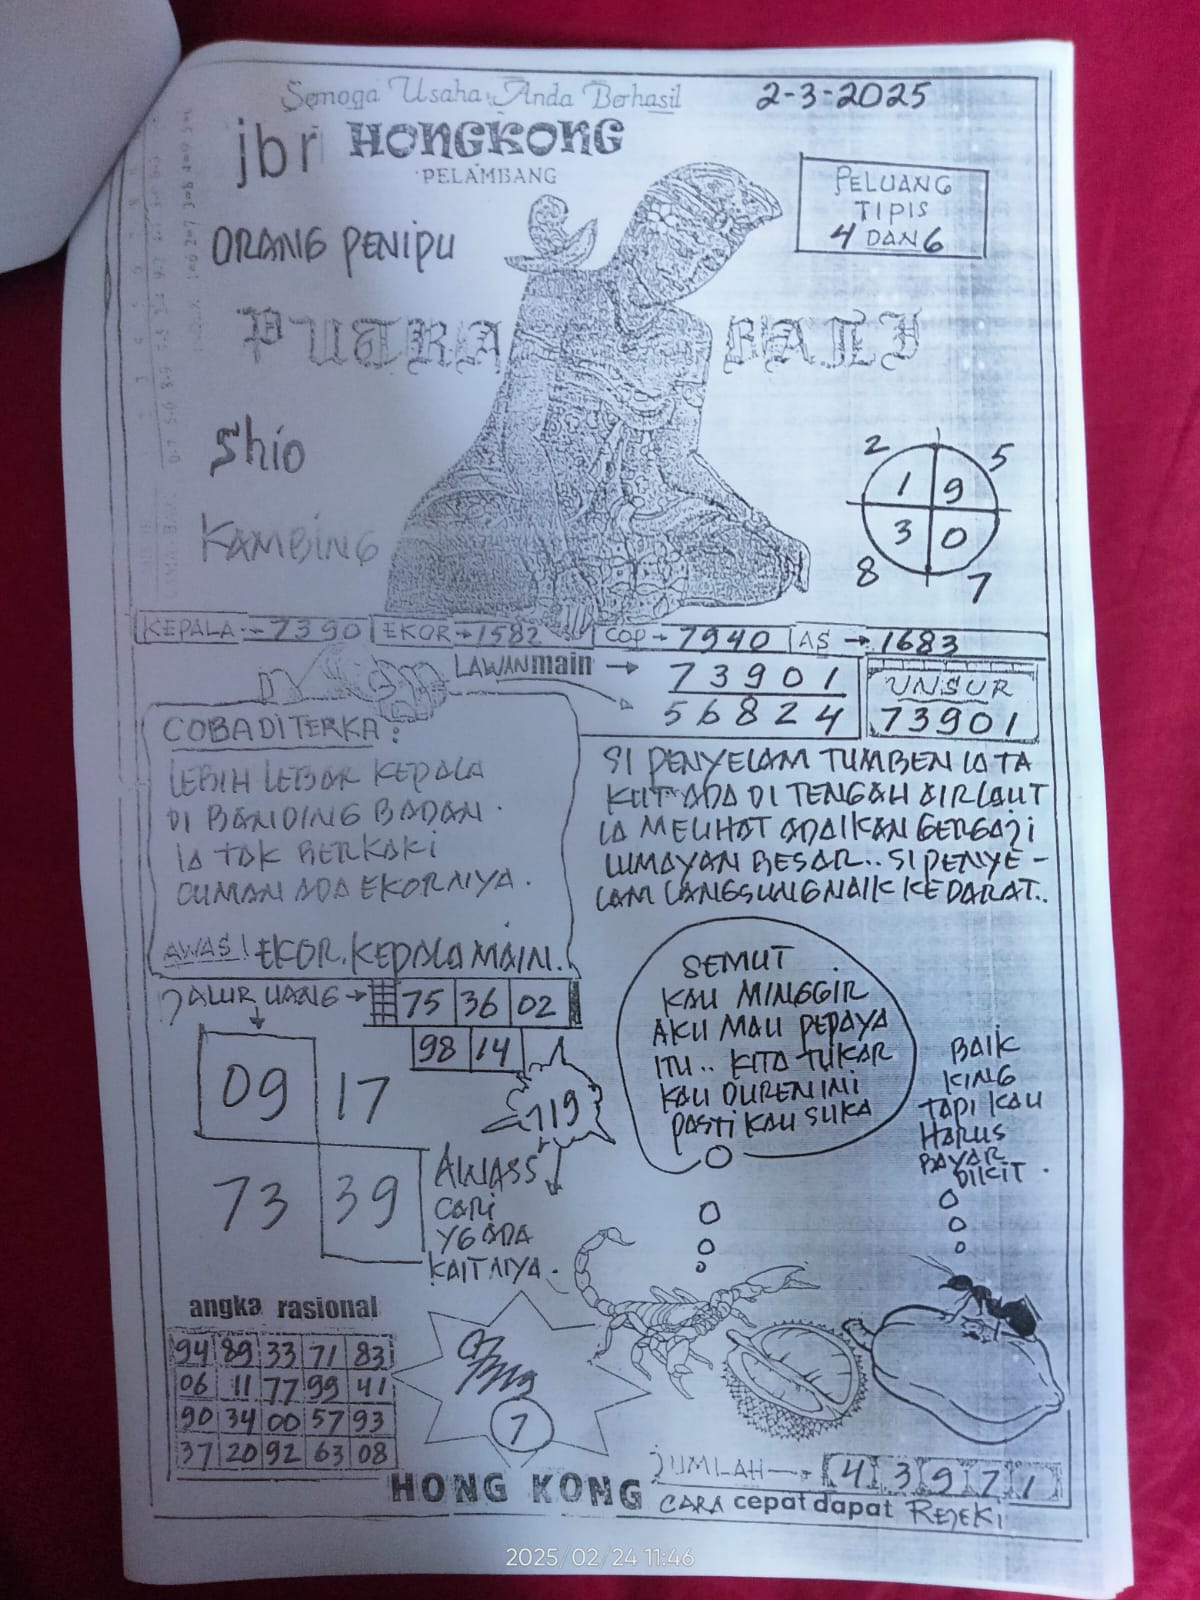 Semoga Usaha Anda Berhasil
2-3-2025
jbr HONGKONG
PELAMBANG
PELUANG
TIPIS
4 DAN 6
ORANG PENIPU
PUTRA BALI
Shio
KAMBING
2 5
1 9
3 0
8 7
KEPALA - 7390 EKOR → 1582 COP → 7940 AS → 1683
LAWAN main → 73901
56824
UNSUR
73901
COBA DITERKA:
LEBIH LEBAR KEPALA
DI BANDING BADAN.
IA TAK BERKAKI
CUMAN ADA EKORNYA.
AWAS! EKOR. KEPALA MAIN.
SI PENYELAM TUMBEN IA TA
KUT ADA DI TENGAH AIR LAUT
IA MELIHAT ADA IKAN GERGAJI
LUMAYAN BESAR.. SI PENYE -
LAM LANGSUNG NAIK KE DARAT..
JALUR UANG → 75 36 02
98 14
09 17
73 39
119
AWASS
CARI
YG ADA
KAITNYA.
SEMUT
KAU MINGGIR
AKU MAU PEPAYA
ITU.. KITA TUKAR
KAU DUREN INI
PASTI KAU SUKA
BAIK
KING
TAPI KAU
HARUS
BAYAR
DIKIT.
angka rasional
94 89 33 71 83
06 11 77 99 41
90 34 00 57 93
37 20 92 63 08
7
JUMLAH → 4 3 9 7 1
HONG KONG CARA cepat dapat REJEKI
2025/02/24 11:46